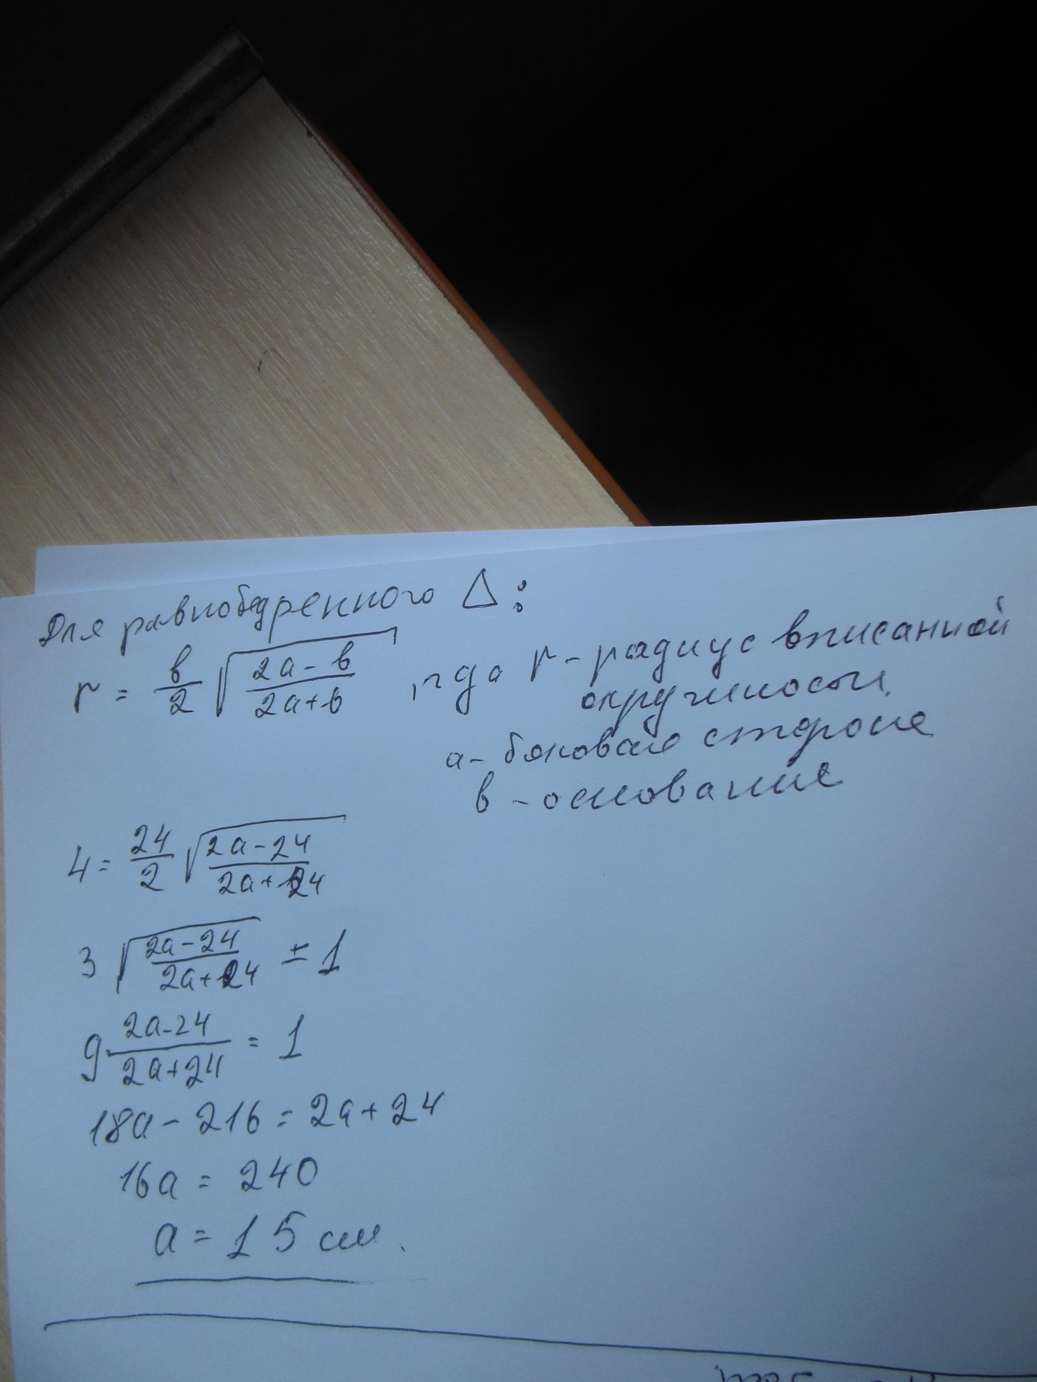 Для равнобедренного △:
r = в/2 √((2a - в)/(2a + в)) , где r - радиус вписанной
окружности,
a - боковая сторона
в - основание
4 = 24/2 √((2a - 24)/(2a + 24))
3 √((2a - 24)/(2a + 24)) = 1
9 · (2a - 24)/(2a + 24) = 1
18a - 216 = 2a + 24
16a = 240
a = 15 см.